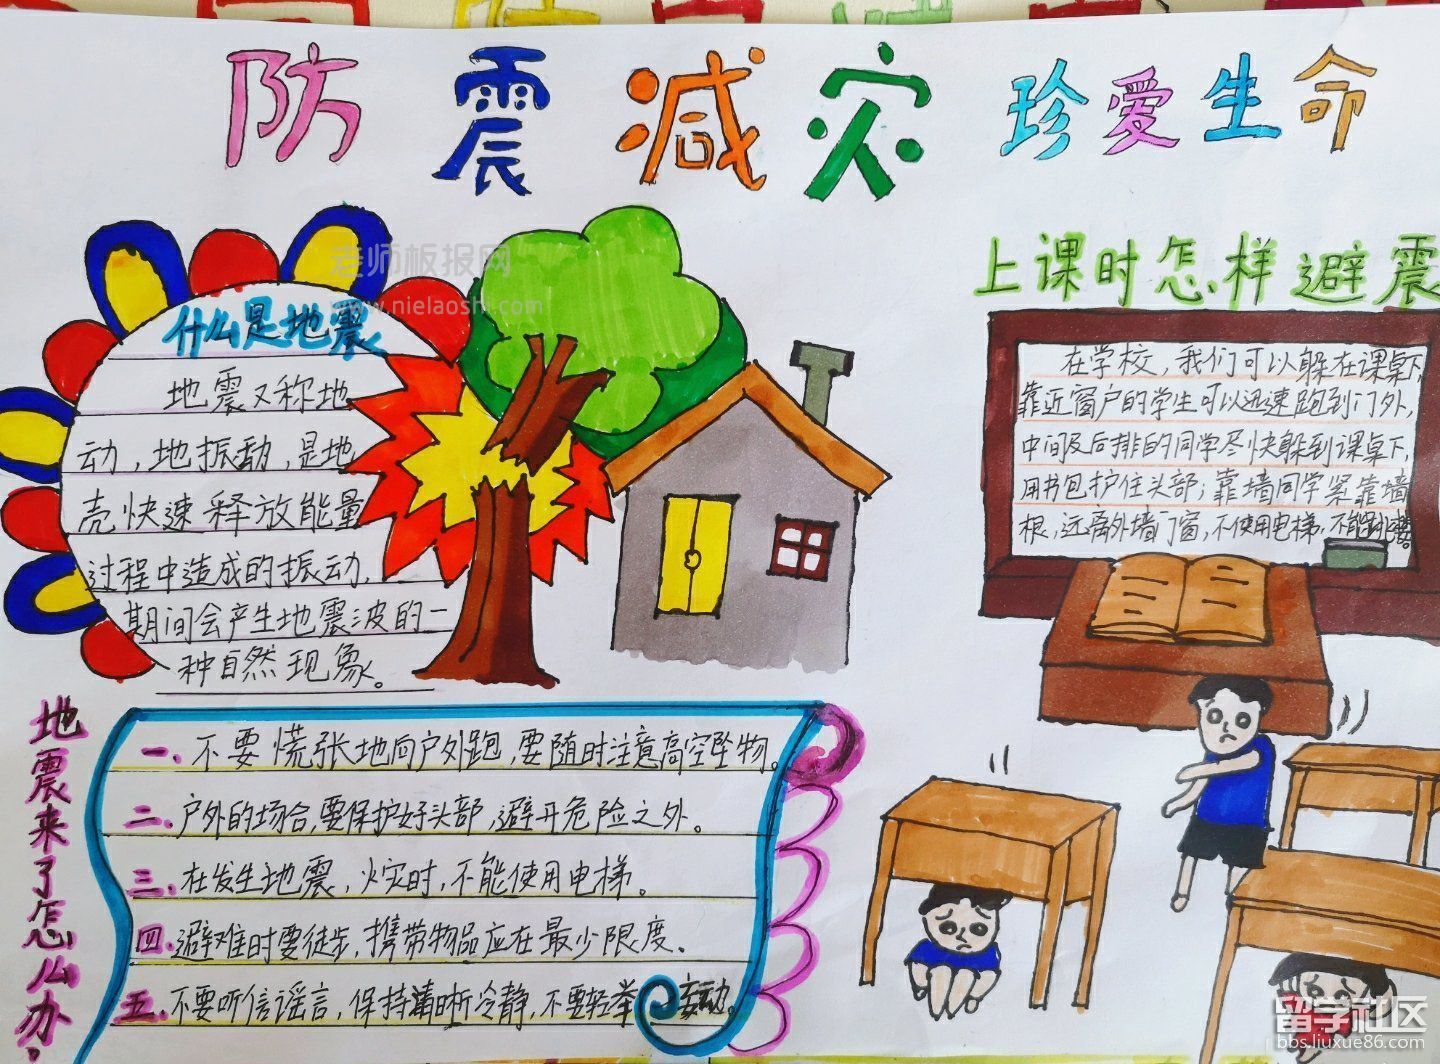 防震减灾 珍爱生命
老师板报网
www.nielaoshi.com
什么是地震
地震又称地
动,地振动,是地
壳快速释放能量
过程中造成的振动,
期间会产生地震波的一
种自然现象。
上课时怎样避震
在学校,我们可以躲在课桌下,
靠近窗户的学生可以迅速跑到门外,
中间及后排的同学尽快躲到课桌下,
用书包护住头部;靠墙同学紧靠墙
根,远离外墙门窗,不使用电梯,不能跳楼。
地震来了怎么办?
一.不要慌张地向户外跑,要随时注意高空坠物。
二.户外的场合,要保护好头部,避开危险之外。
三.在发生地震,火灾时,不能使用电梯。
四.避难时要徒步,携带物品应在最少限度。
五.不要听信谣言,保持清晰冷静,不要轻举妄动。
留学社区
bbs.liuxue86.com